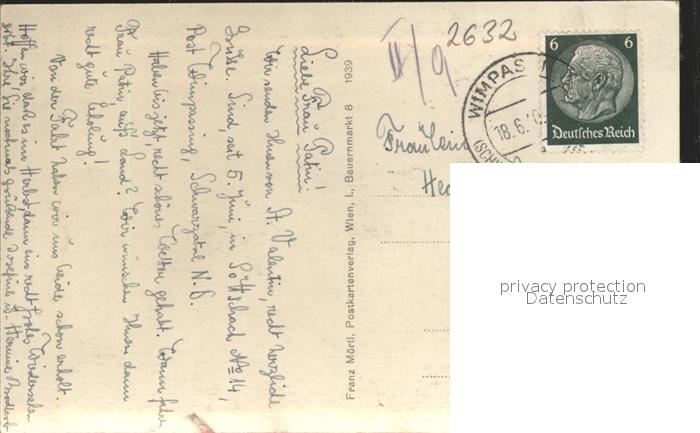 Liebe Frau Patin!
Wir senden Ihnen von St. Valentin, recht herzliche
Grüße. Sind, seit 5. Juni, in Pottschach No 14,
Post Wimpassing, Schwarzatal N.D.
Haben bis jetzt, recht schönes Wetter gehabt. Wann fahren
Fr. Frau Patin, auf's Land? Wir wünschen Ihnen dann
recht gute Erholung!
Von der Fahrt haben wir uns beide schon erholt.
Hoffen wir, daß es im Herbst dann ein recht frohes Wiedersehen
gibt. Sie nochmals grüßende Josefine u. Hermine
Franz Mörtl, Postkartenverlag, Wien, I., Bauernmarkt 8 1939
II/9
2632
WIMPAS
18.6.
(SCH
6 6
Deutsches Reich
Fräulein
He
privacy protection
Datenschutz